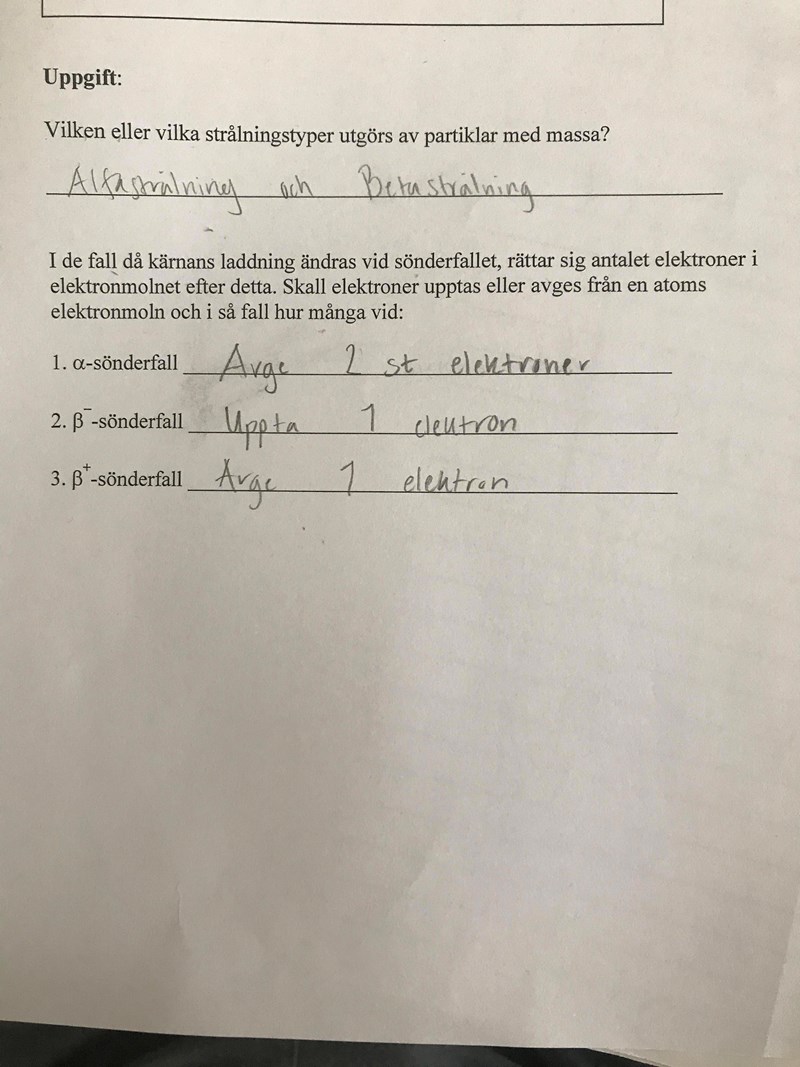 Uppgift:
Vilken eller vilka strålningstyper utgörs av partiklar med massa?
Alfastrålning och Betastrålning
I de fall då kärnans laddning ändras vid sönderfallet, rättar sig antalet elektroner i
elektronmolnet efter detta. Skall elektroner upptas eller avges från en atoms
elektronmoln och i så fall hur många vid:
1. α-sönderfall Avge 2 st elektroner
2. β⁻-sönderfall Uppta 1 elektron
3. β⁺-sönderfall Avge 1 elektron